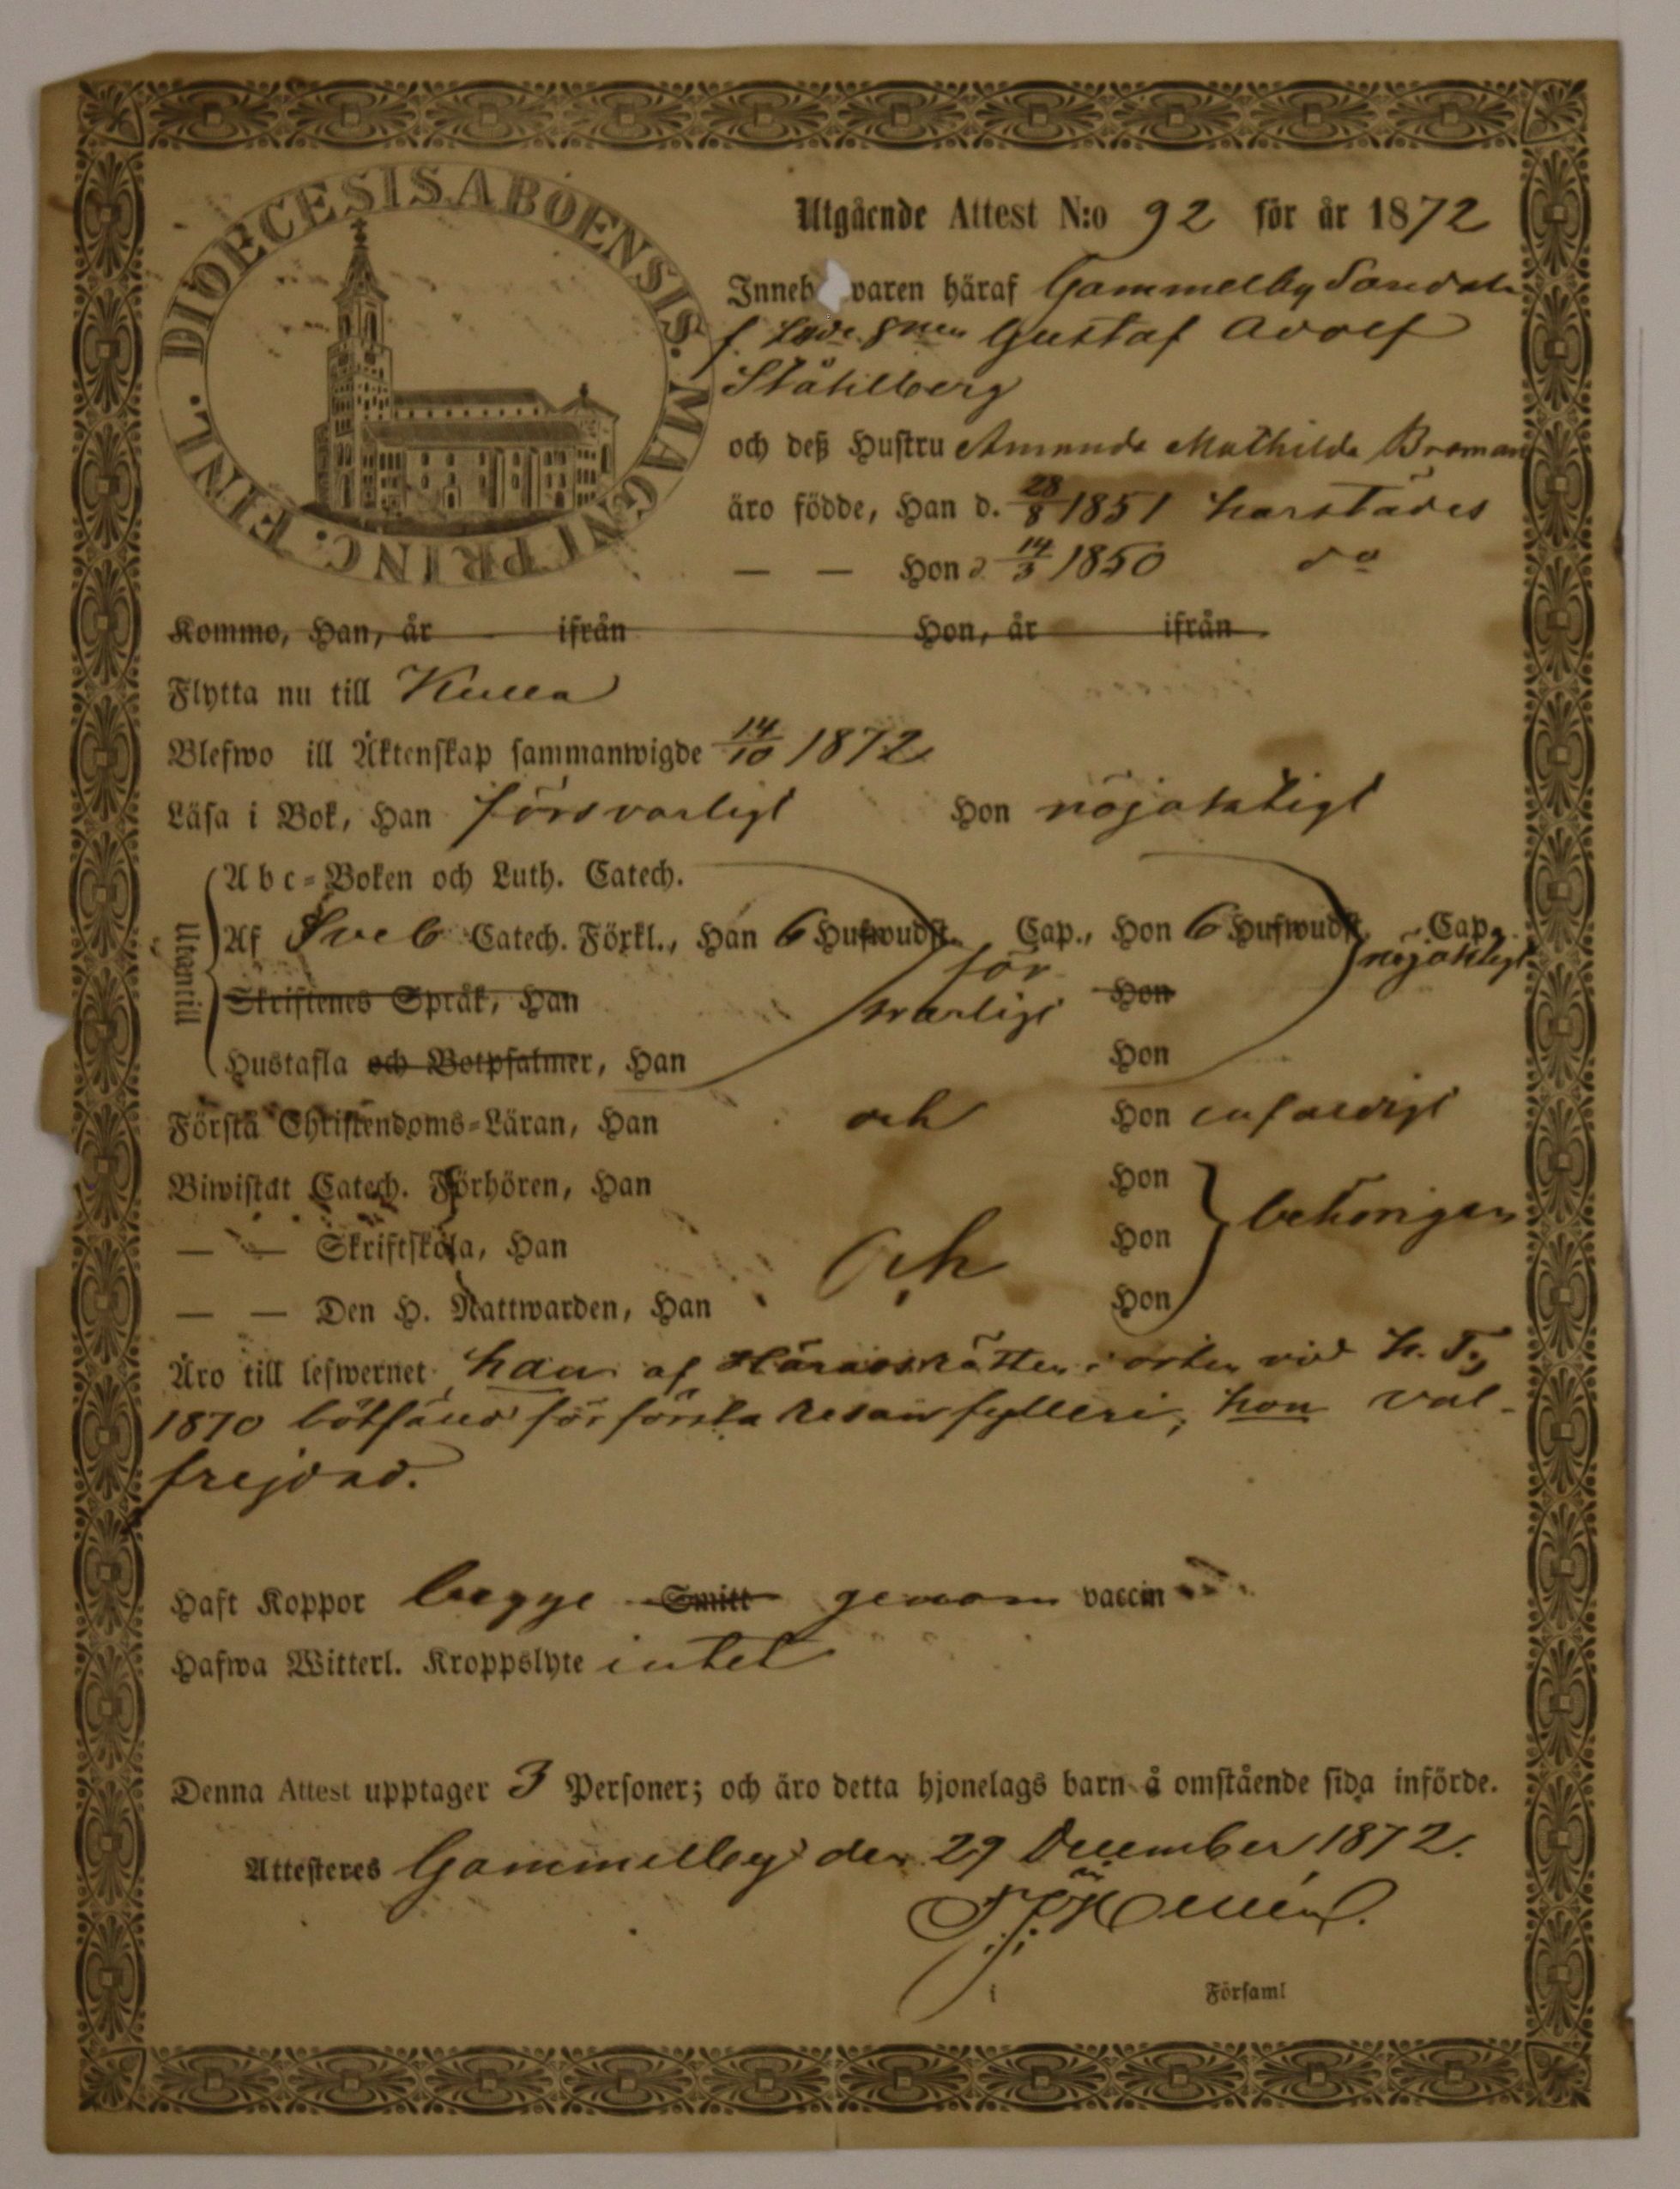 DIOECESIS ABOENSIS. MAGNI PRINC. FINL.
Utgående Attest N:o 92 för år 1872
Inneh varen häraf Gammelby
f. Gustaf Adolf
Ståhlberg
och deß Hustru Amanda Mathilda Broman
äro födde, Han d. 28/8 1851 härstädes
— — Hon d 14/3 1850 do
Kommo, Han, år ifrån Hon, år ifrån
Flytta nu till Kulla
Blefwo ill Äktenskap sammanwigde 14/10 1872
Läsa i Bok, Han försvarligt Hon nöjaktigt
Utantill
Abc-Boken och Luth. Catech.
Af Sveb Catech. Förkl., Han 6 Hufwudst. Cap., Hon 6 Hufwudst. Cap. nöjaktigt
för
Skriftenes Språk, Han svarligt Hon
Hustafla och Botpsalmer, Han Hon
Första Christendoms-Läran, Han och Hon enfaldigt
Biwistat Catech. Förhören, Han Hon
— — Skriftskola, Han och Hon behörigen
— — Den H. Nattwarden, Han Hon
Äro till lefwernet, han af Häradsrätten i orten vid h. T.
1870 bötfäld för första resan fylleri; hon väl-
frejdad.
Haft Koppor begge Smitt genom vaccin
Hafwa Witterl. Kroppslyte intet
Denna Attest upptager 3 Personer; och äro detta hjonelags barn å omstående sida införde.
Attesteres Gammelby den 29 December 1872.
i Församl